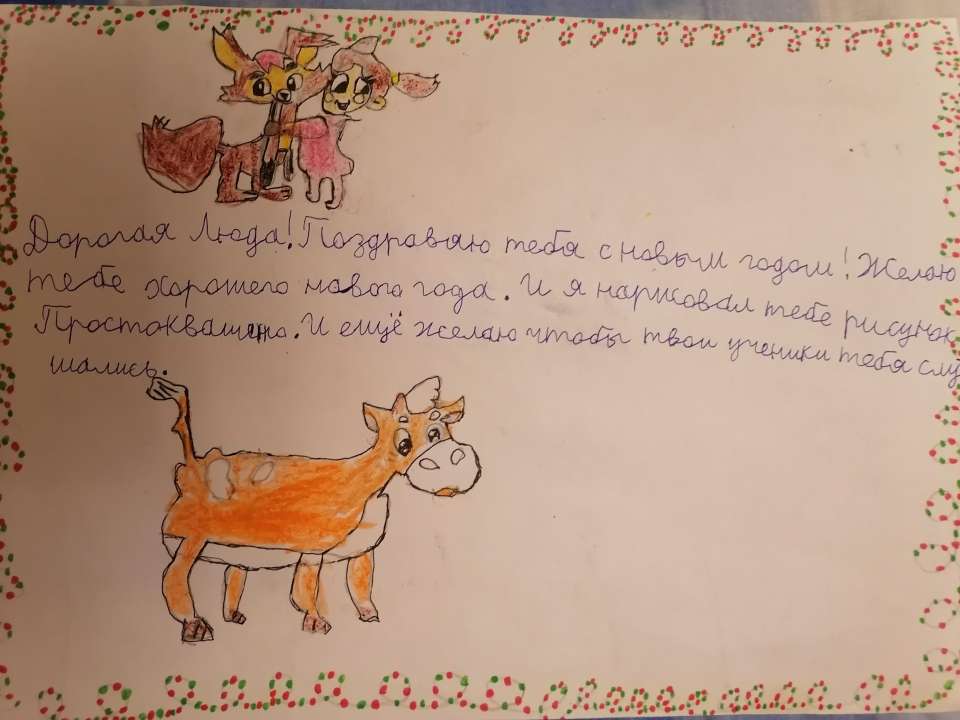 Дорогая Люда! Поздровяю тебя с новым годом! Желаю
тебе хорошего нового года. И я нарисовал тебе рисунок
Простоквашино. И ещё желаю чтобы твои ученики тебя слу
шались.